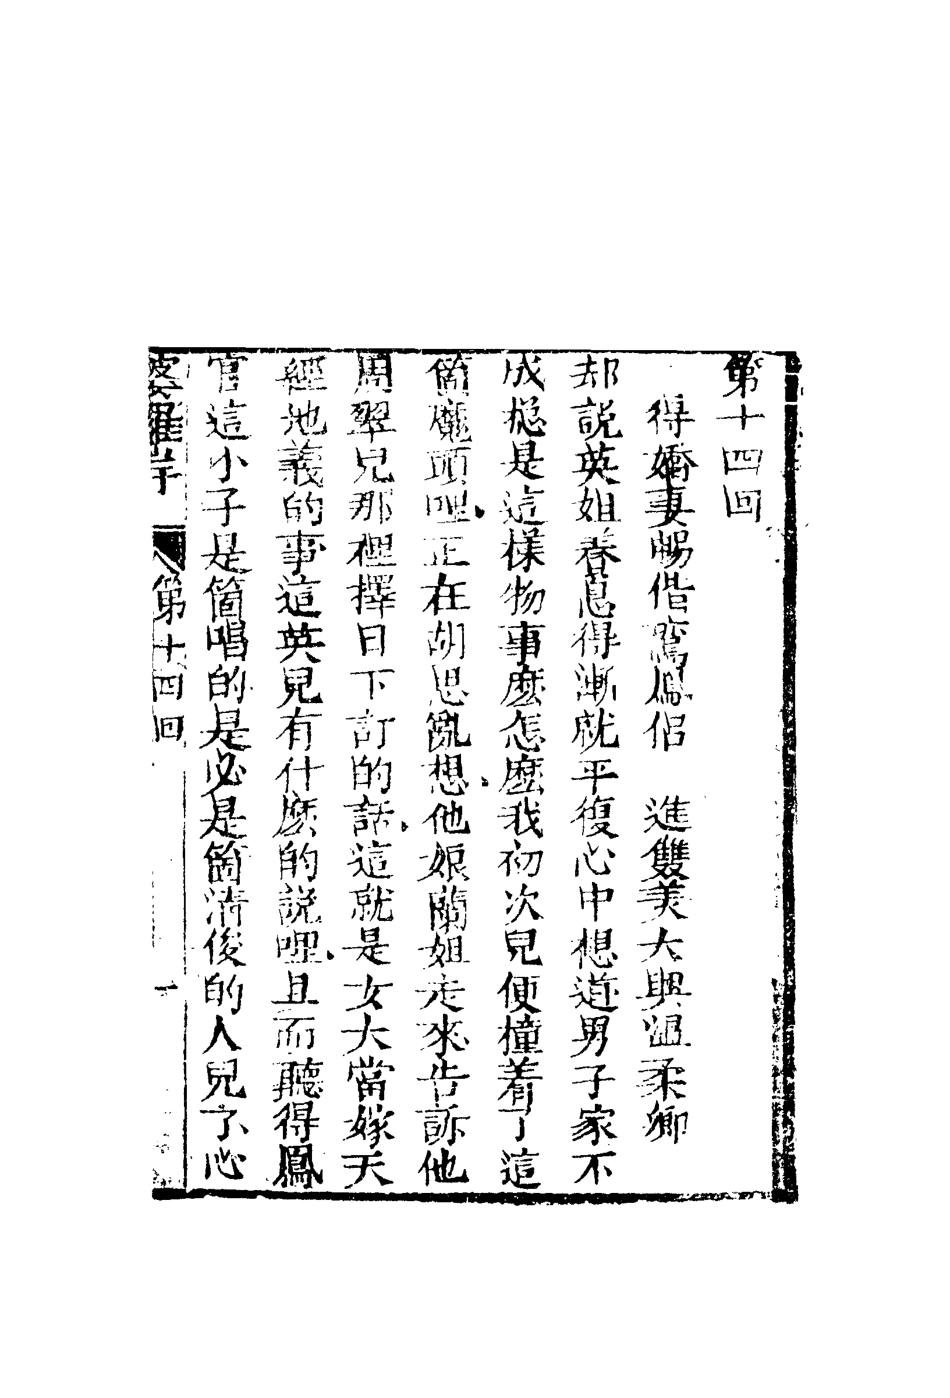 第十四回
得嬌妻暢偕鸞鳳侣　進雙美大興温柔鄉
却説英姐養息得漸就平復心中想道男子家不
成摠是這様物事麽怎麽我初次兒便撞着了這
箇魔頭哩正在胡思亂想他娘蘭姐走來告訴他
周翠兒那裡擇日下訂的話這就是女大當嫁天
經地義的事這英兒有什麽的説哩且而聽得鳳
官這小子是箇唱的是必是箇清俊的人兒了心
婆羅岸　第十四回　一